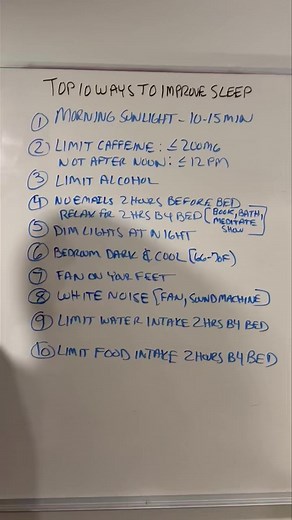 TOP 10 WAYS TO IMPROVE SLEEP
① MORNING SUNLIGHT - 10-15 MIN
② LIMIT CAFFEINE: ≤ 200MG
NOT AFTER NOON: ≤ 12PM
③ LIMIT ALCOHOL
④ NO EMAILS 2 HOURS BEFORE BED
RELAX FOR 2 HRS BY BED [BOOK, BATH, MEDITATE SHOW]
⑤ DIM LIGHTS AT NIGHT
⑥ BEDROOM DARK & COOL [66-70F]
⑦ FAN ON YOUR FEET
⑧ WHITE NOISE [FAN, SOUND MACHINE]
⑨ LIMIT WATER INTAKE 2 HRS BY BED
⑩ LIMIT FOOD INTAKE 2 HOURS BY BED